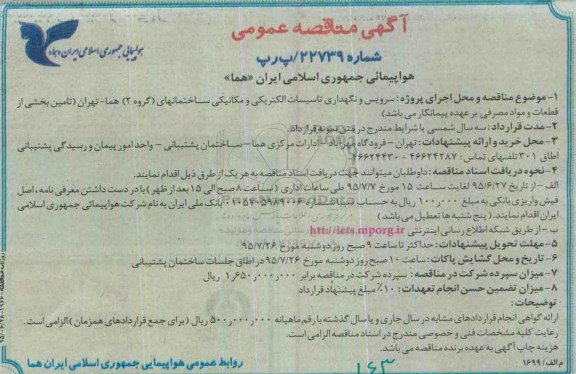 آگهی مناقصه عمومی
شماره ۲۲۷۳۹/پ‌ر‌پ
هواپیمائی جمهوری اسلامی ایران «هما»
هواپیمائی جمهوری اسلامی ایران «هما»
۱-موضوع مناقصه و محل اجرای پروژه: سرویس و نگهداری تاسیسات الکتریکی و مکانیکی ساختمانهای (گروه ۲) هما-تهران (تامین بخشی از
قطعات و مواد مصرفی بر عهده پیمانکار می باشد)
۲-مدت قرارداد: سه سال شمسی با شرایط مندرج در متن نمونه قرارداد
۳- محل خرید و ارائه پیشنهادات: تهران - فرودگاه مهرآباد-ادارات مرکزی هما-ساختمان پشتیبانی - واحد امور پیمان و رسیدگی پشتیبانی
اطاق ۳۰۱ تلفنهای تماس: ۴۶۶۲۴۲۸۷ - ۴۶۶۲۴۴۳۰
۴- نحوه دریافت اسناد مناقصه: داوطلبان میتوانند جهت دریافت اسناد مناقصه به هر یک از طرق ذیل اقدام نمایند.
الف -از تاریخ ۹۵/۶/۲۷ لغایت ساعت ۱۵ مورخ ۹۵/۷/۷ طی ساعات اداری (ساعت ۸ صبح الی ۱۵ بعد از ظهر) با در دست داشتن معرفی نامه، اصل
فیش واریزی بانکی به مبلغ ۱۰۰٫۰۰۰ ریال به حساب شماره ۰۱۰۵۷۰۵۹۸۹۰۰۶ بانک ملی ایران به نام شرکت هواپیمائی جمهوری اسلامی
ایران اقدام نمایند. (پنج شنبه ها تعطیل می باشد)
ب -از طریق شبکه اطلاع رسانی اینترنتی http://iets.mporg.ir
۵-مهلت تحویل پیشنهادات: حداکثر تا ساعت ۹ صبح روز دوشنبه مورخ ۹۵/۷/۲۶
۶- تاریخ و محل گشایش پاکات: ساعت ۱۰ صبح روز دوشنبه مورخ ۹۵/۷/۲۶ در اطاق جلسات ساختمان پشتیبانی
۷-میزان سپرده شرکت در مناقصه: سپرده شرکت در مناقصه برابر ۱٫۶۵۰٫۰۰۰٫۰۰۰ ریال
۸-میزان تضمین حسن انجام تعهدات: ۱۰٪ مبلغ پیشنهاد قرارداد
توضیحات:
ارائه گواهی انجام قراردادهای مشابه در سال جاری و یا سال گذشته با رقم ماهیانه ۵۰۰٫۰۰۰٫۰۰۰ ریال (برای جمع قراردادهای همزمان) الزامی است.
رعایت کلیه مشخصات فنی و خصوصی مندرج در اسناد مناقصه الزامی است.
هزینه چاپ آگهی به عهده برنده مناقصه می باشد.
روابط عمومی هواپیمایی جمهوری اسلامی ایران هما
م الف/۱۶۹۹
۱۶۳